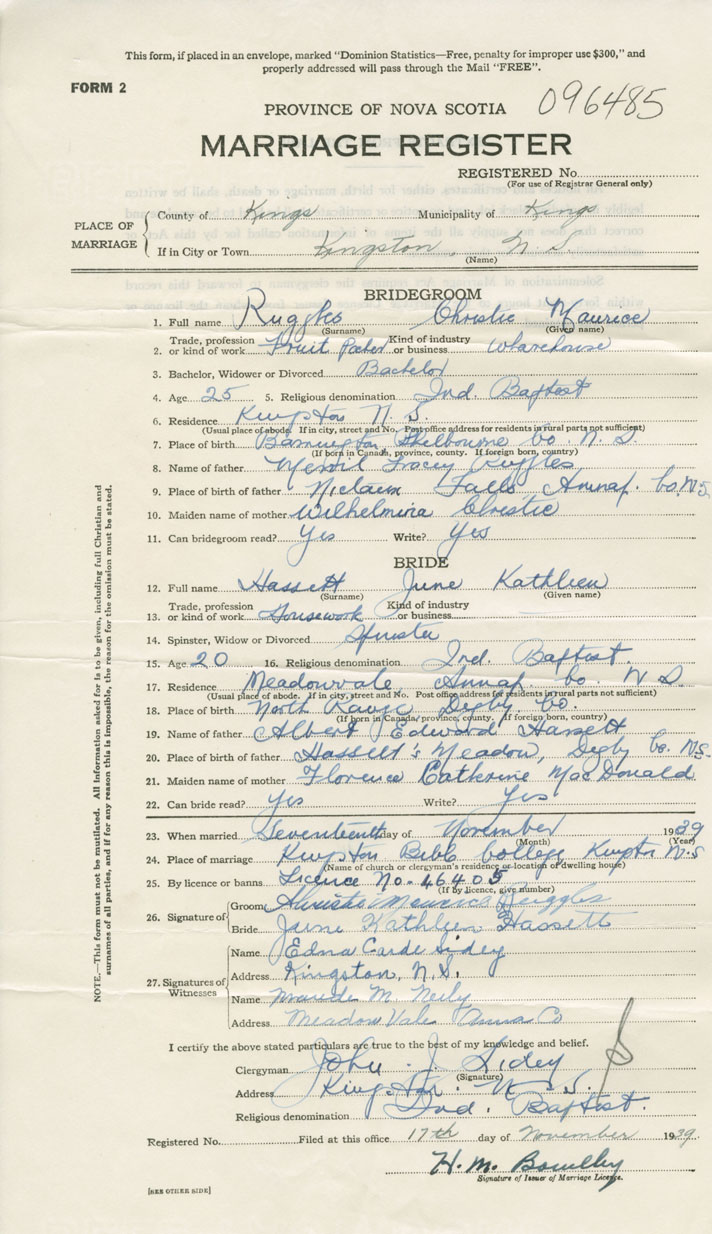 This form, if placed in an envelope, marked "Dominion Statistics—Free, penalty for improper use $300," and
properly addressed will pass through the Mail "FREE".
FORM 2
096485
PROVINCE OF NOVA SCOTIA
MARRIAGE REGISTER
REGISTERED No.
(For use of Registrar General only)
PLACE OF MARRIAGE
County of Kings Municipality of Kings
If in City or Town Kingston, N. S.
(Name)
BRIDEGROOM
1. Full name Ruggles Christie Maurice
(Surname) (Given name)
2. Trade, profession or kind of work Fruit Packer Kind of industry or business Wharehouse
3. Bachelor, Widower or Divorced Bachelor
4. Age 25 5. Religious denomination Ind. Baptist
6. Residence Kingston N. S.
(Usual place of abode. If in city, street and No. Post office address for residents in rural parts not sufficient)
7. Place of birth Barrington Shelbourne Co. N. S.
(If born in Canada, province, county. If foreign born, country)
8. Name of father Tracey Ruggles
9. Place of father Falls, Annap. Co. N.S
10. Maiden name of mother Wilhelmina Christie
11. Can bridegroom read? Yes Write? Yes
BRIDE
12. Full name Hassett June Kathleen
(Surname) (Given name)
13. Trade, profession or kind of work Housework Kind of industry or business
14. Spinster, Widow or Divorced Spinster
15. Age 20 16. Religious denomination Ind. Baptist.
17. Residence Meadowvale Annap. Co. N S.
(Usual place of abode. If in city, street and No. Post office address for residents in rural parts not sufficient)
18. Place of birth North Range Digby Co.
(If born in Canada, province, county. If foreign born, country)
19. Name of father Albert Edward Hassett
20. Place of birth of father Hassett's Meadow, Digby Co. N.S.
21. Maiden name of mother Florence Catherine MacDonald
22. Can bride read? Yes Write? Yes
23. When married Seventeenth day of November 1939
(Month) (Year)
24. Place of marriage Kingston Bible College Kingston N.S
(Name of church or clergyman's residence or location of dwelling house)
25. By licence or banns Licence No. 46405
(If by licence, give number)
26. Signature of
Groom Christie Maurice Ruggles
Bride June Kathleen Hassett
27. Signatures of Witnesses
Name Edna Carde Sidey
Address Kingston, N.S.
Name M. Neily
Address Meadow Vale Anna Co
I certify the above stated particulars are true to the best of my knowledge and belief.
Clergyman John J. Sidey
(Signature)
Address Kingston. N. S.
Religious denomination Ind. Baptist.
Registered No. Filed at this office 17th day of November 1939.
H. M.
Signature of Issuer of Marriage License.
[SEE OTHER SIDE]
NOTE.—This form must not be mutilated. All information asked for is to be given, including full Christian and
surnames of all parties, and if for any reason this is impossible, the reason for the omission must be stated.